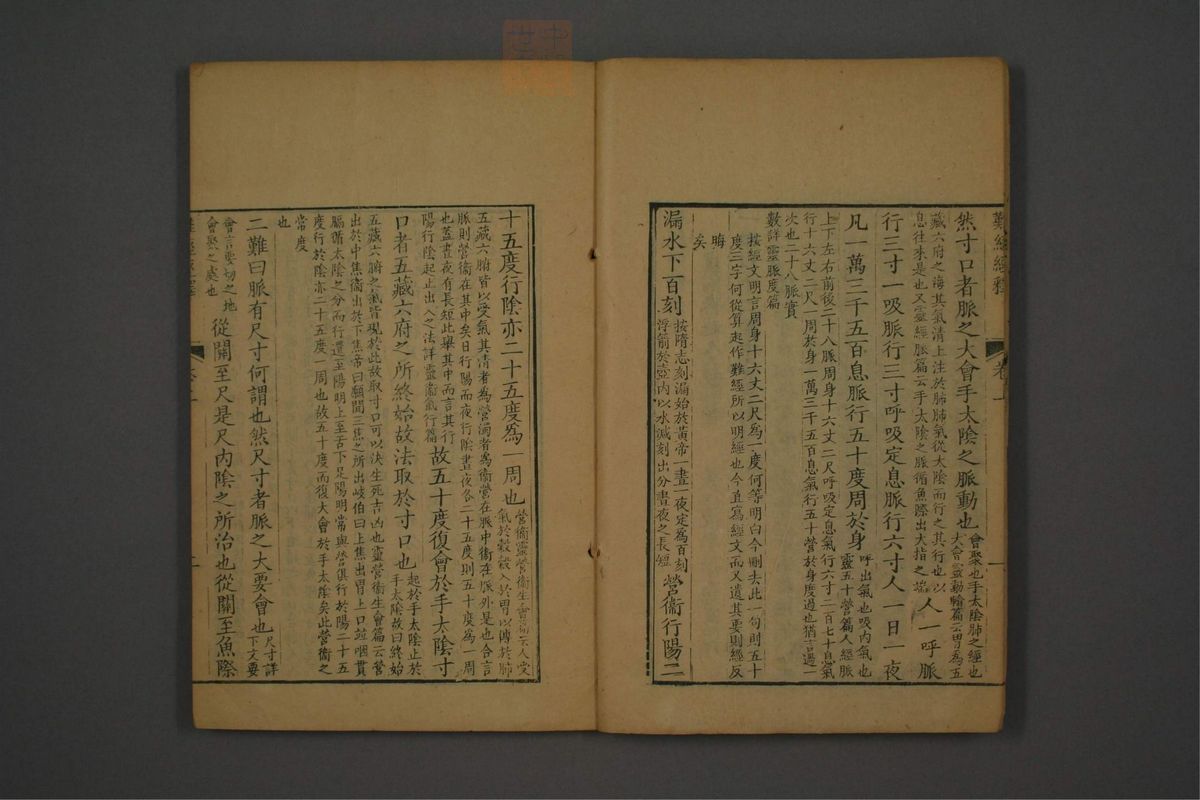 難經經釋
卷上
一
然寸口者脈之大會手太陰之脈動也會聚也手太陰肺之經也
大會靈動輸篇云胃為五
藏六府之海其氣清上注於肺肺氣從太陰而行之其行也以
息往來是也又靈經脈篇云手太陰之脈循魚際出大指之端人一呼脈
行三寸一吸脈行三寸呼吸定息脈行六寸人一日一夜
凡一萬三千五百息脈行五十度周於身呼出氣也吸內氣也
靈五十營篇人經脈
上下左右前後二十八脈周身十六丈二尺呼吸定息氣行六寸二百七十息氣
行十六丈二尺一周於身一萬三千五百息氣行五十營於身度過也猶言過一
次也二十八脈實
數詳靈脈度篇
按經文明言周身十六丈二尺爲一度何等明白今刪去此一句則五十
度三字何從算起作難經所以明經也今直寫經文而又遺其要則經反
晦
矣
漏水下百刻按隋志刻漏始於黃帝一晝一夜定爲百刻
浮箭於壺內以水減刻出分晝夜之長短營衞行陽二
十五度行陰亦二十五度為一周也營衞靈營衞生會篇云人受
氣於穀穀入於胃以傳於肺
五藏六腑皆以受氣其清者為營濁者為衞營在脈中衞在脈外是也合言
脈則營衞在其中矣日行陽而夜行陰晝夜各二十五度則五十度爲一周
也蓋晝夜有長短此舉其中而言其行
陽行陰起止出入之法詳靈衞氣行篇故五十度復會於手太陰寸
口者五藏六府之所終始故法取於寸口也起於手太陰止於
手太陰故曰終始
五藏六腑之氣皆現於此故取寸口可以決生死吉凶也靈營衞生會篇云營
出於中焦衞出於下焦帝曰願聞三焦之所出岐伯曰上焦出胃上口竝咽貫
膈循太陰之分而行還至陽明上至舌下足陽明常與營俱行於陽二十五
度行於陰亦二十五度一周也故五十度而復大會於手太陰矣此營衞之
常度
也
二難曰脈有尺寸何謂也然尺寸者脈之大要會也尺寸詳
下文要
會言要切之地
會聚之處也從關至尺是尺內陰之所治也從關至魚際